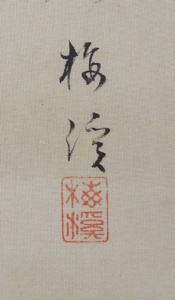 梅
溪
梅
溪